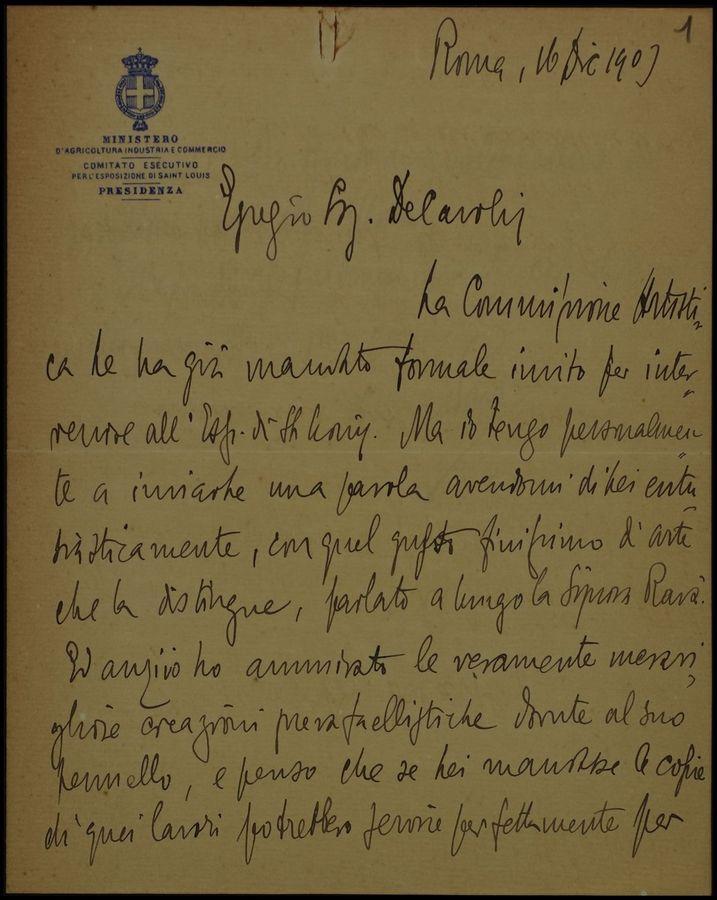 1
Roma, 16 Dic 1903
MINISTERO
D'AGRICOLTURA INDUSTRIA E COMMERCIO
COMITATO ESECUTIVO
PER L'ESPOSIZIONE DI SAINT LOUIS
PRESIDENZA
Egregio Sig. De Carolis
La Commissione Artisti-
ca Le ha già mandato formale invito per inter-
venire all'Esp. di St Louis. Ma io tengo personalmen-
te a inviarle una parola avendomi di Lei entu-
siasticamente, con quel gusto finissimo d'arte
che la distingue, parlato a lungo la Signora Rava.
Ed anzi io ho ammirato le veramente meravi-
gliose creazioni prerafaellistiche dovute al suo
pennello, e penso che se Lei mandasse le copie
di quei lavori potrebbero servire perfettamente per